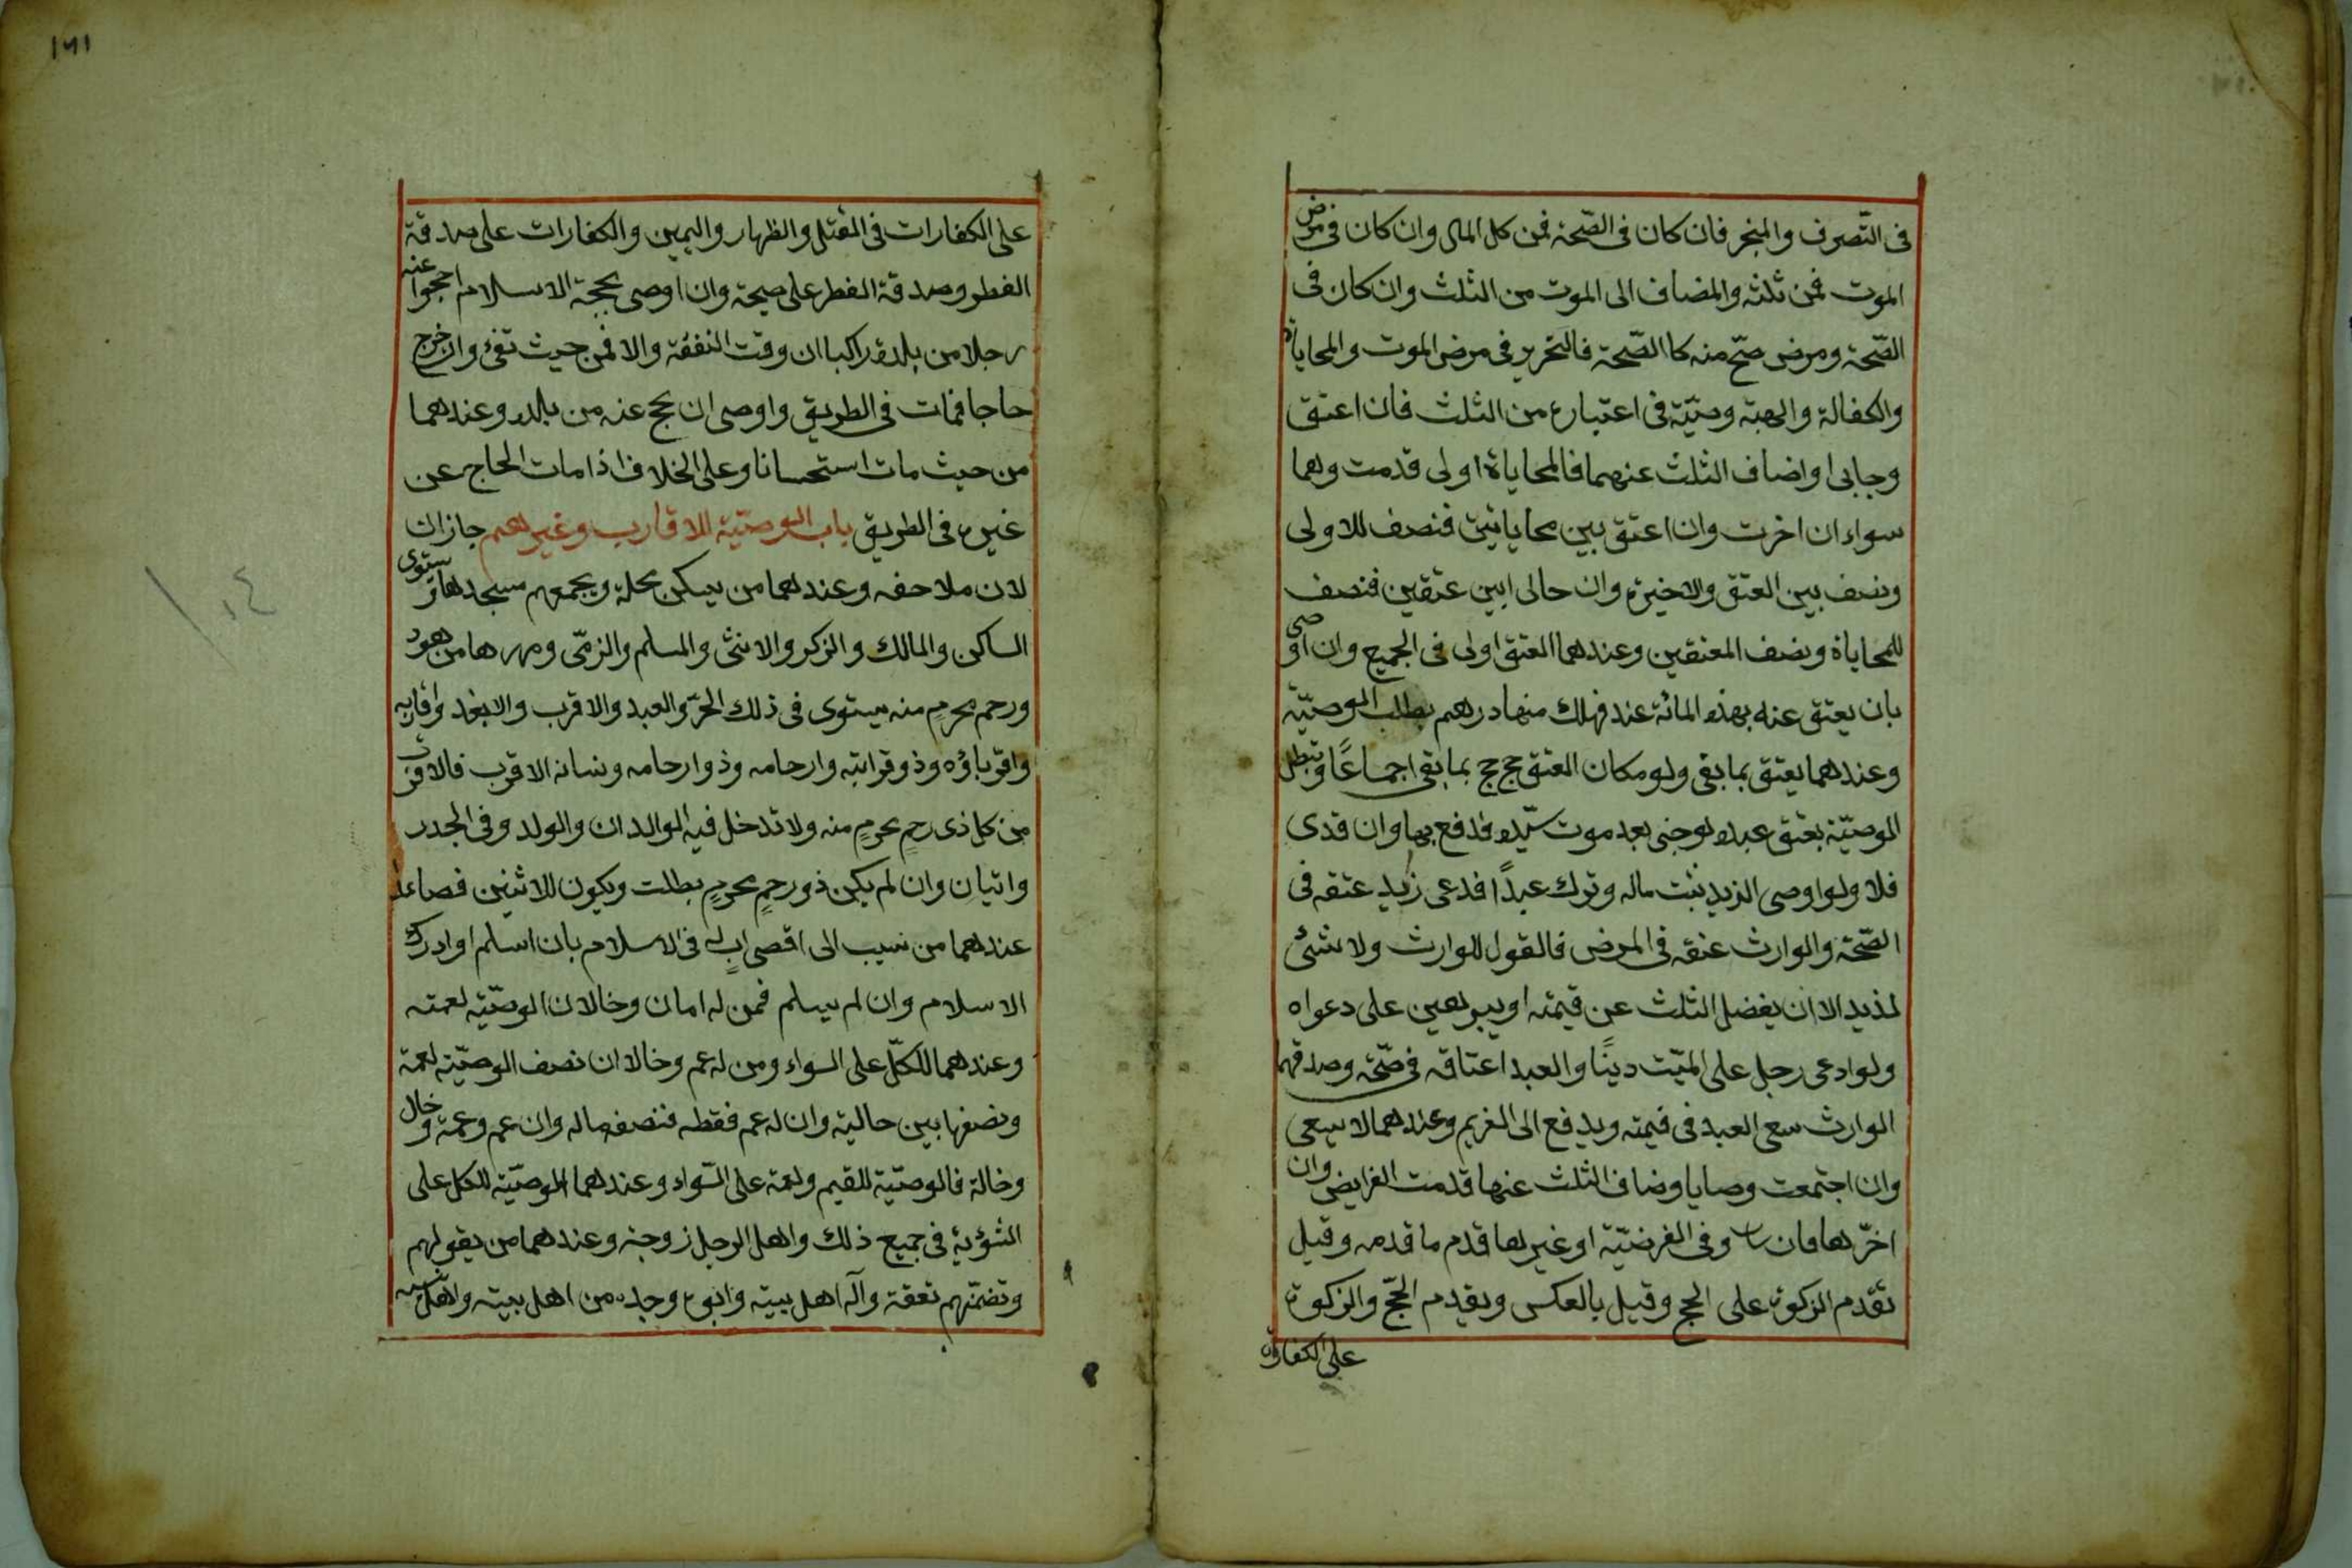 فى التّصرف والمنجز فان كان فى الصّحة فمن كل المال وان كان فى مرض
الموت فمن ثلثه والمضاف الى الموت من الثلث وان كان فى
الصّحة ومرض صحّ منه كا الصّحة فالتحرير فى مرض الموت والمحاياة
والكفالة والهبة وصيّة فى اعتباره من الثلث فان اعتق
وجابى اواضاف الثلث عنهما فالمحاياة اولى قدمت وهما
سواء ان اخرت وان اعتق بين محاياتين فنصف للاولى
ونصف بين العتق والاخيرة وان حالى ابين عتقين فنصف
للمحاياة ونصف المعتقين وعندهما العتق اولى فى الجميع وان اوصى
بان يعتق عنه بهذه المائة عند فهلك منها درهم بطلب الموصيّة
وعندهما يعتق بما بقى ولو مكان العتق حج حج بما بقى اجماعًا وتبطل
الموصيّة بعتق عبده لوجنى بعد موت سيّده فدفع بها وان فدى
فلا ولو اوصى الزيد بثت ماله وترك عبدًا فدعى زيد عتقه فى
الصّحة والوارث عتقه فى المرض فالقول للوارث ولا شئ
لمذيد الا ان يفضل الثلث عن قيمته او يبرهين على دعواه
ولو ادعى رجل على الميّت دينًا والعبد اعتاقه فى صحّته وصدقهما
الوارث سعى العبد فى قيمته ويدفع الى الغريم وعندهما لا يسعى
وان اجتمعت وصايا وضاف الثلث عنها قدمت الفرايض وان
اخرّها فان وفى الفرضيّة او غيرها قدم ما قدمه وقيل
تقدم الزكوة على الحج وقيل بالعكس ويقدم الحجّ والزكوة
على الكفارات
١٦١
على الكفارات فى القتل والظهار واليمين والكفارات على صدقة
الفطر وصدقة الفطر على صيحة وان اوصى بحجة الاسلام احجوا عنه
رجلا من بلده راكبا ان وقت النفقة والا فمن حيث تفئ وان خرج
حاجا فمات فى الطريق واوصى ان يحج عنه من بلده وعندهما
من حيث مات استحسانا وعلى الخلاف اذا مات الحاج عن
غيره فى الطريق باب الوصيّة للاقارب وغيرهم جاز ان
لان ملاحفه وعندهما من يسكن محلة ويجمعهم مسجدها ويستوى
الساكن والمالك والزكر والانثى والمسلم والزمّى ومهرها من هعود
ورحم محرمٍ منه يستوى فى ذلك الحرّ والعبد والاقرب والابعد واقاربه
واقرباؤه وذو قرابته وارحامه وذوارحامه ونسانه الاقرب فالاقرب
من كل ذى رحمٍ محرمٍ منه ولا تدخل فيه الوالدان والولد وفى الجدر
واتيان وان لم يكن ذو رحمٍ محرمٍ بطلت ويكون للاثنين فصاعدا
عندهما من نسب الى اقصى ابٍ له فى الاسلام بان اسلم او ادرك
الاسلام وان لم يسلم فمن له امان وخالان الوصيّة لعمته
وعندهما للكلّ على السواء ومن له عم وخالا ان نصف الوصيّة لعمة
ونصفها بين حالية وان له عم فقطه فنصف ماله وان عم وعمة وخال
وخالة فالموصيّة للقيم ولعمة على السّواء وعندهما الموصيّة للكل على
الشؤية فى جميع ذلك واهل الرجل زوجته وعندهما من يقولهم
وتضمّنهم تعقة وآله اهل بيته وابوه وجده من اهل بيته واهل
١٠٤